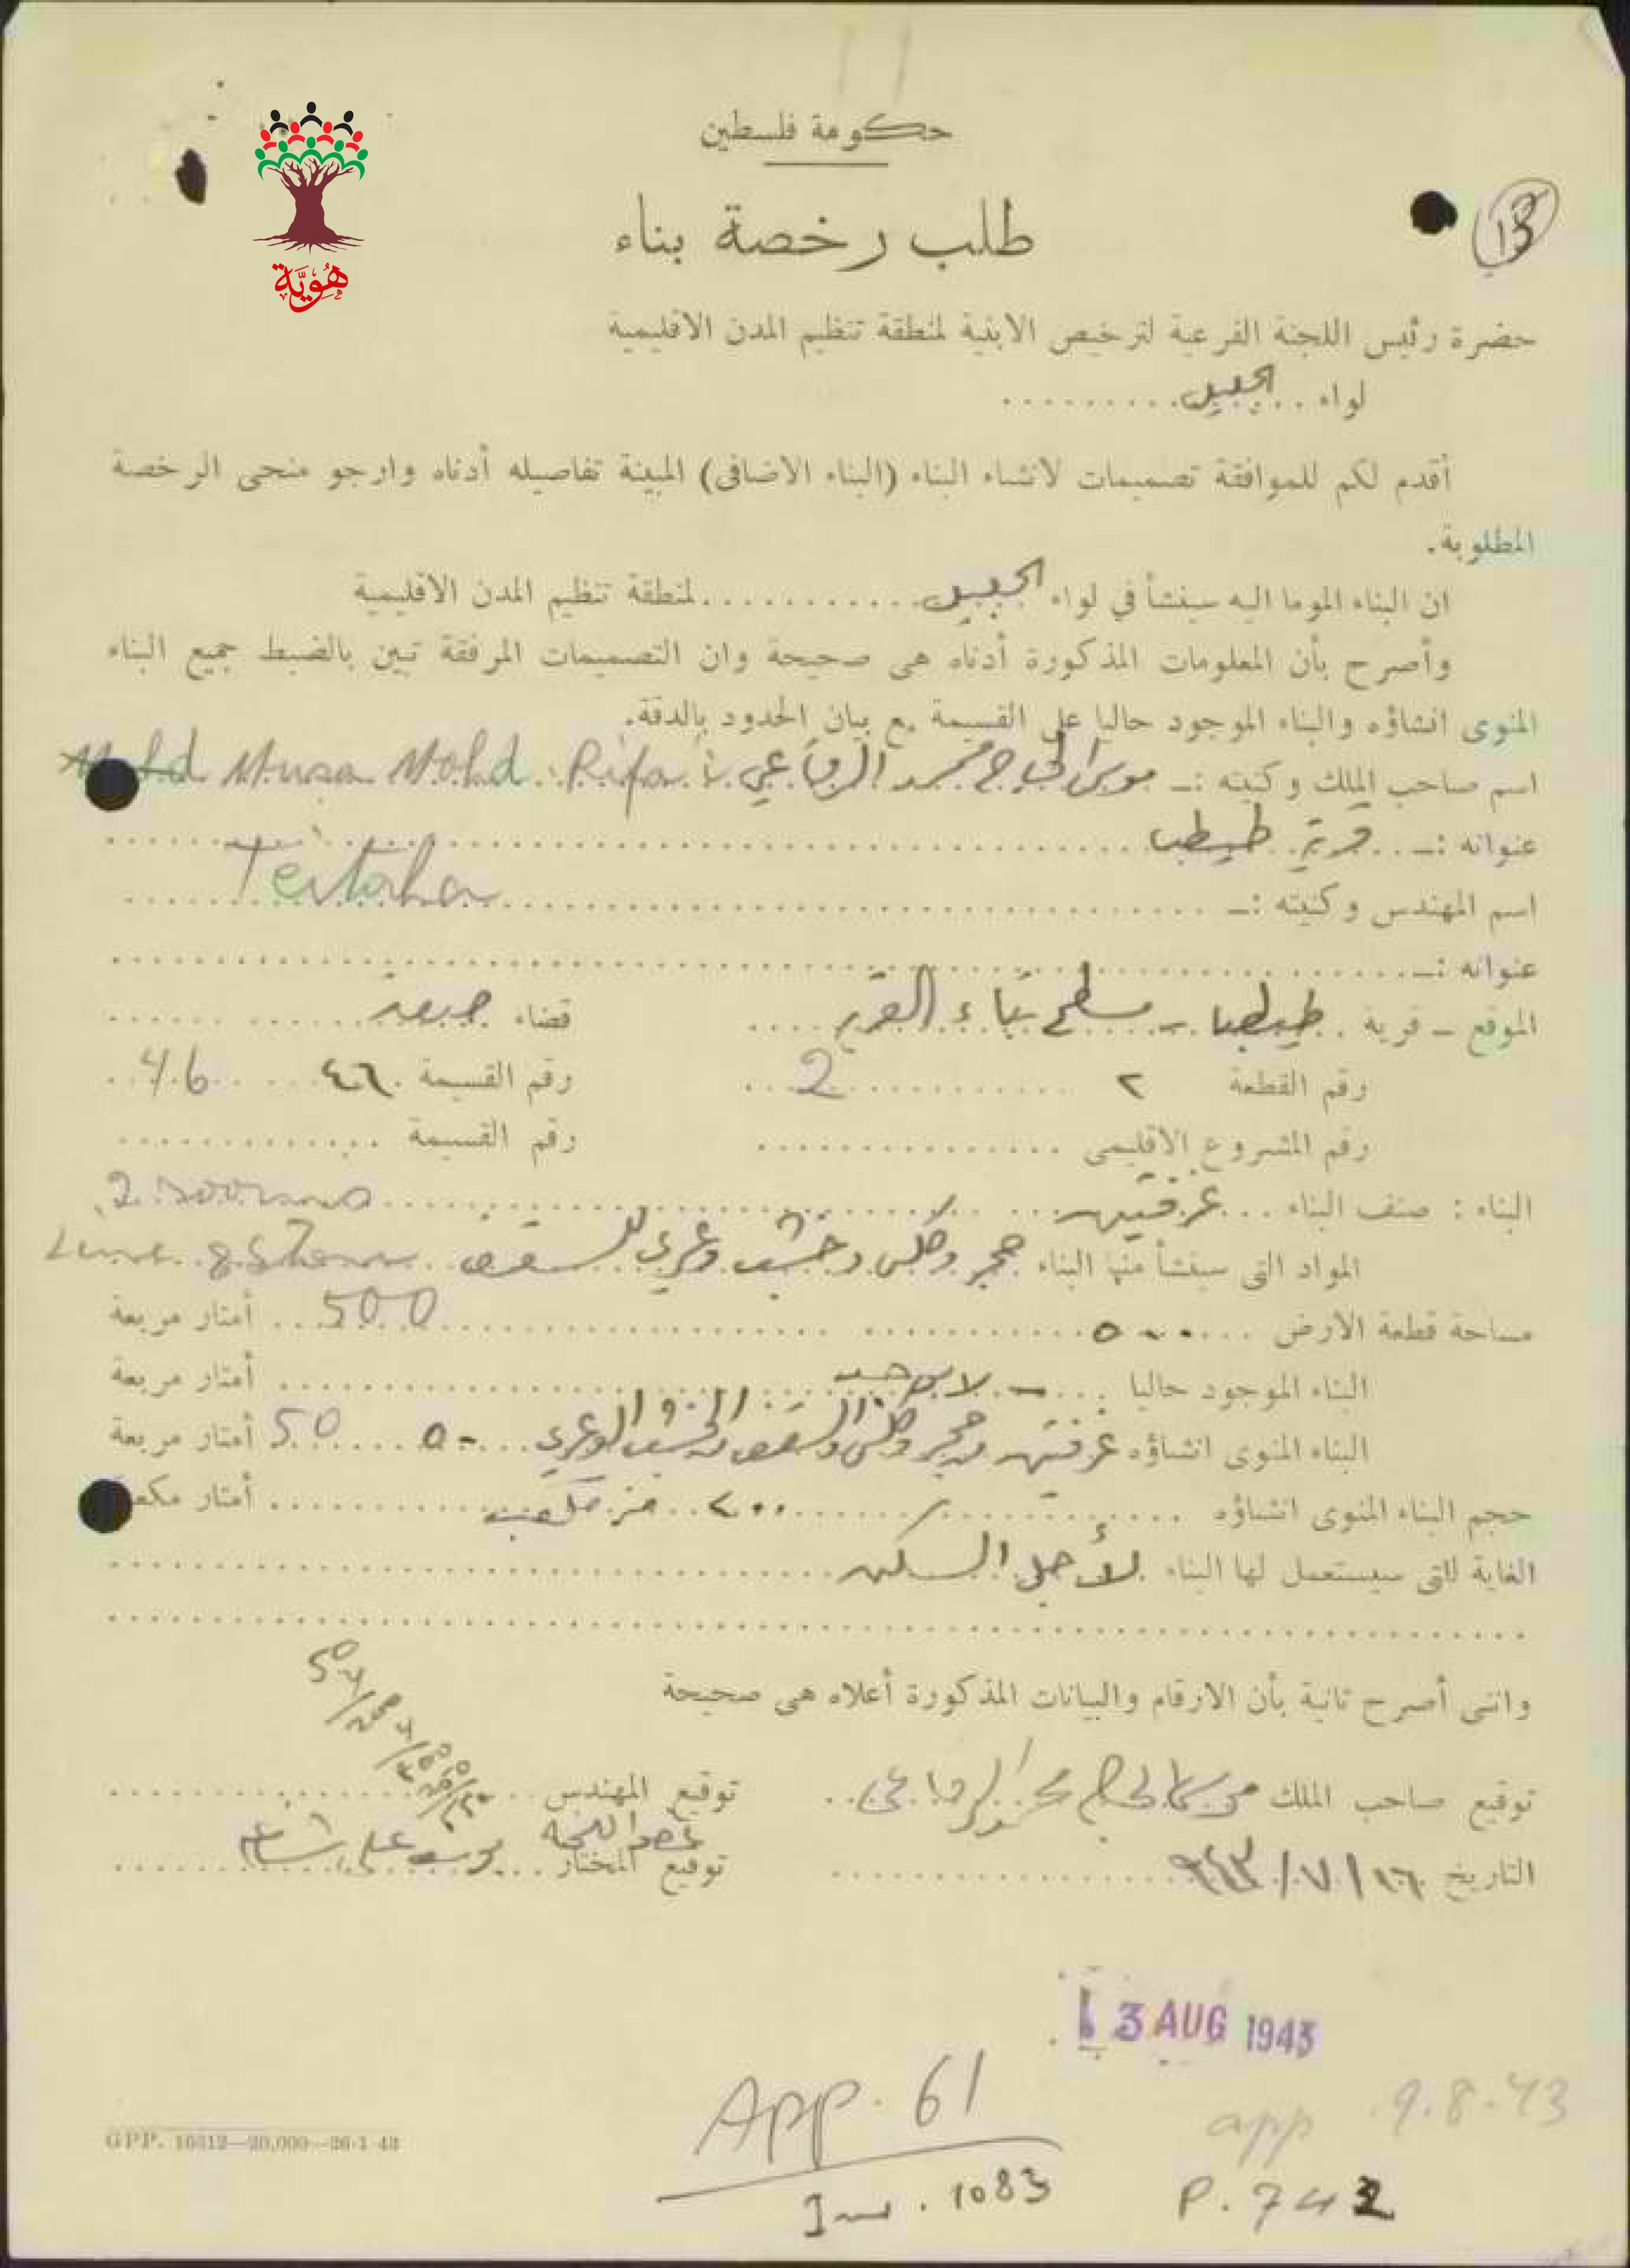 حكومة فلسطين
طلب رخصة بناء
13
هُوِيَّة
حضرة رئيس اللجنة الفرعية لترخيص الابنية لمنطقة تنظيم المدن الاقليمية
لواء الجليل
أقدم لكم للموافقة تصميمات لانشاء البناء (البناء الاضافى) المبينة تفاصيله أدناه وارجو منحى الرخصة
المطلوبة.
ان البناء الموما اليه سينشأ في لواء الجليل لمنطقة تنظيم المدن الاقليمية
وأصرح بأن المعلومات المذكورة أدناه هى صحيحة وان التصميمات المرفقة تبين بالضبط جميع البناء
المنوى انشاؤه والبناء الموجود حاليا على القسيمة مع بيان الحدود بالدقة.
اسم صاحب الملك وكنيته :ــ موسى الحاج محمد الرفاعي Musa Mohd. Rifa'i
عنوانه :ــ قرية طيطبا
Teitaba
اسم المهندس وكنيته :ــ
عنوانه :ــ
الموقع ــ قرية طيطبا - مسطح بناء القرية قضاء صفد
رقم القطعة ٢ 2 رقم القسيمة ٤٦ 46
رقم المشروع الاقليمى رقم القسيمة
البناء : صنف البناء غرفتين 2 rooms
المواد التى سينشأ منها البناء حجر وكلس وخشب للسقف Lime & Stone
مساحة قطعة الارض ٥٠٠ 500 أمتار مربعة
البناء الموجود حاليا - لا يوجد أمتار مربعة
البناء المنوى انشاؤه غرفتين حجر وكلس ٥٠ 50 أمتار مربعة
حجم البناء المنوى انشاؤه ٢٠٠ متر مكعب أمتار مكعبة
الغاية التى سيستعمل لها البناء لأجل السكن
واننى أصرح ثانية بأن الارقام والبيانات المذكورة أعلاه هى صحيحة
توقيع صاحب الملك موسى الحاج محمد الرفاعي توقيع المهندس
التاريخ ١٦/٧/٩٤٣ توقيع المختار
13 AUG 1943
App. 61
app 9.8.43
Inv. 1083
P. 742
GPP. 10312—20,000—26-1-43